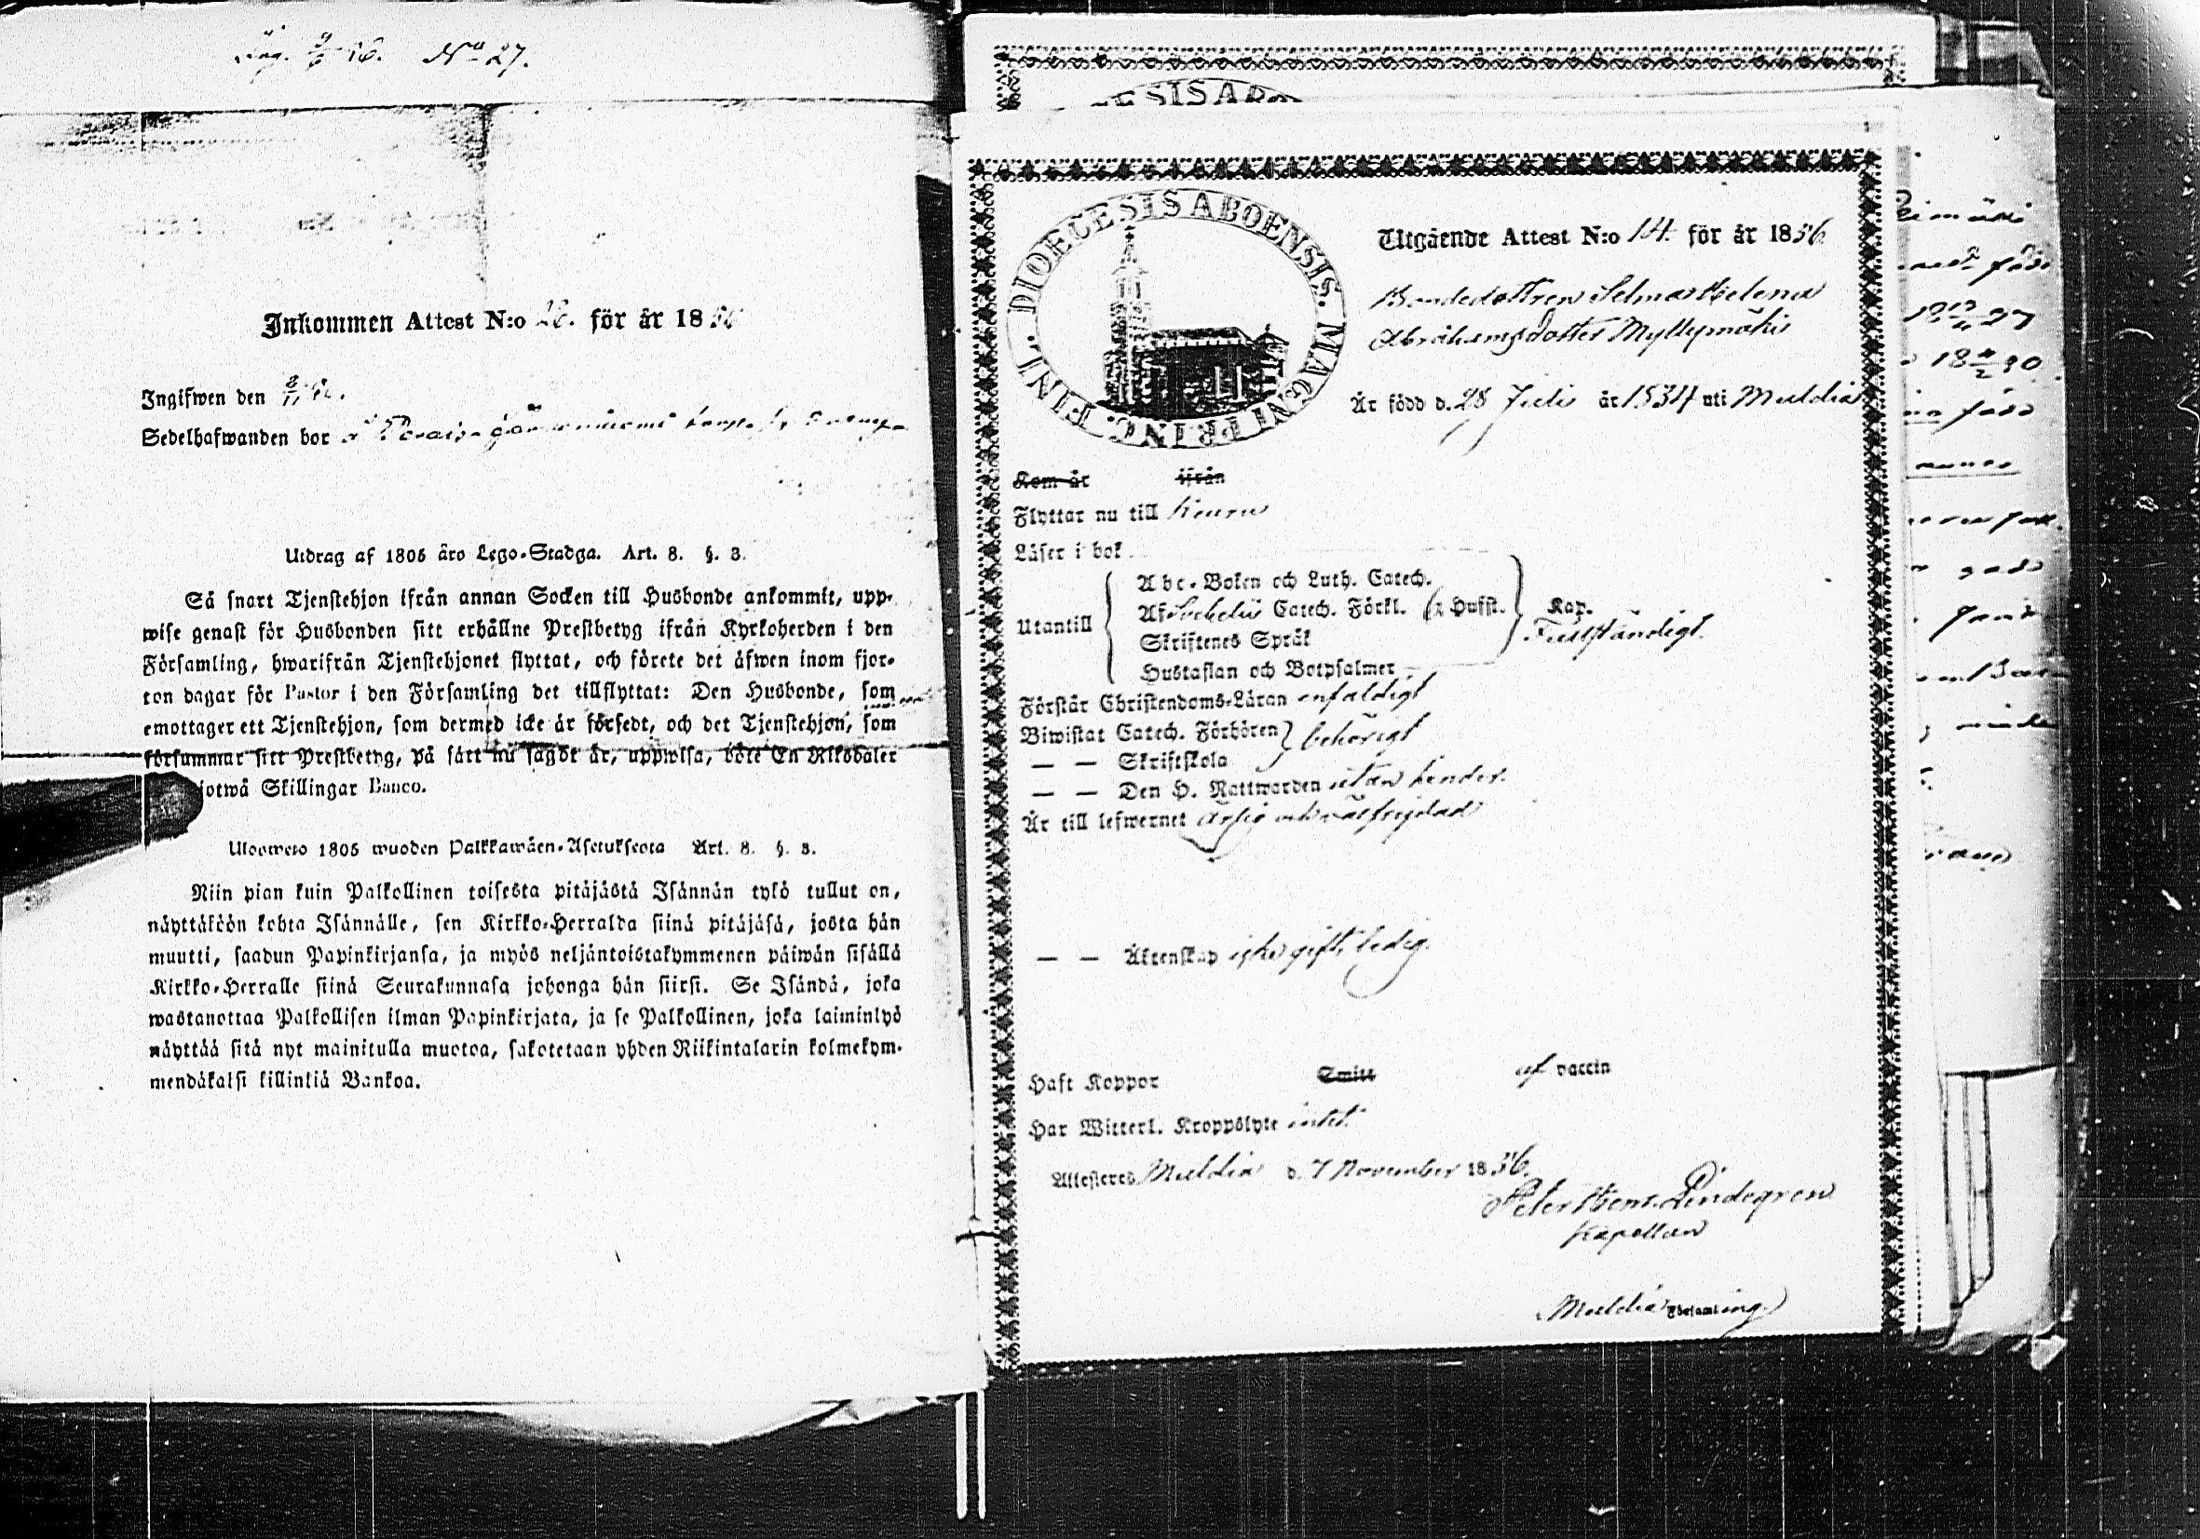 No 27.
Inkommen Attest N:o för år 18
Ingifwen den
Sedelhafwanden bor
Utdrag af 1805 års Lego-Stadga. Art. 8. §. 3.
Så snart Tjenstehjon ifrån annan Socken till Husbonde ankommit, upp-
wise genast för Husbonden sitt erhållne Prestbetyg ifrån Kyrkoherden i den
Församling, hwarifrån Tjenstehjonet flyttat, och förete det äfwen inom fjor-
ton dagar för Pastor i den Församling det tillflyttat: Den Husbonde, som
emottager ett Tjenstehjon, som dermed icke är försedt, och det Tjenstehjon, som
försummar sitt Prestbetyg, på sätt nu sagdt är, uppwisa, böte En Riksdaler
jotwå Skillingar Banco.
Ulosweto 1805 wuoden Palkkawäen-Asetuksesta Art. 8. §. 3.
Niin pian kuin Palkollinen toisesta pitäjästä Isännän tykö tullut on,
näyttäköön kohta Isännälle, sen Kirkko-Herralda siinä pitäjäsä, josta hän
muutti, saadun Papinkirjansa, ja myös neljäntoistakymmenen päiwän sisällä
Kirkko-Herralle siinä Seurakunnasa johonga hän siirsi. Se Isändä, joka
wastanottaa Palkollisen ilman Papinkirjata, ja se Palkollinen, joka laiminlyö
näyttää sitä nyt mainitulla muotoa, sakotetaan yhden Riikintalarin kolmekym-
mendäkaksi killinkiä Bankoa.
DIOECESIS ABOENSIS. MAGNI PRINC. FINL.
Utgående Attest N:o 14. för år 1856.
Bondedottren Selma Helena
Abrahamsdotter Myllymäki
Är född d. 28 Julii år 1834 uti Muldia
Kom år ifrån
Flyttar nu till Keuru
Läser i bok
Utantill
Abc-Boken och Luth. Catech.
Af Sebelii Catech. Förkl. Hufst.
Skriftenes Språk
Hustaflan och Botpsalmer
Kap.
Fullständigt.
Förstår Christendoms-Läran enfaldigt
Biwistat Catech. Förhören behörigt
— — Skriftskola
— — Den H. Nattwarden utan hinder.
Är till lefwernet ärlig och wälfrejdad
— — Äktenskap icke gift, ledig.
Haft Koppor Smitt af vaccin
Har Witterl. Kroppslyte intet
Attesteres Muldia d. 7 November 1856.
Peter Henr. Lindegren
Kapellan
(Muldia Församling.)